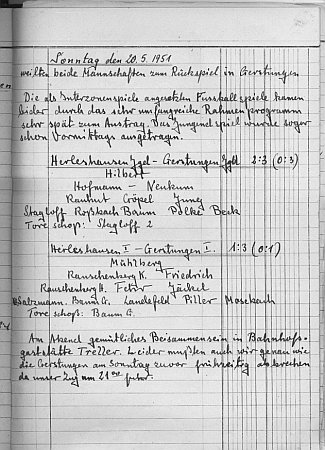 Sonntag den 20.5.1951
weilten beide Mannschaften zum Rückspiel in Gerstungen
Die als Interzonenspiele angesetzten Fussballspiele kamen
leider durch das sehr umfangreiche Rahmenprogramm
sehr spät zum Austrag. Das Jugendspiel wurde sogar
schon Vormittags ausgetragen.
Herleshausen Jgd - Gerstungen Jgd 2:3 (0:3)
Hilbert
Hofmann - Neukum
Rauhut Göpel Jung
Stagloff Roßbach Baum Polke Beck
Tore schoß: Stagloff 2
Herleshausen I - Gerstungen I. 1:3 (0:1)
Mühlberg
Rauschenberg K. Friedrich
Rauschenberg H. Fehr Jäckel
Salzmann. Baum G. Landefeld Piller Mosebach
Tore schoß: Baum G.
Am Abend gemütliches Beisammensein in Bahnhofs-
gaststätte Treller. Leider mußten auch wir genau wie
die Gerstungen am Sonntag zuvor frühzeitig abbrechen
da unser Zug um 21 00 fuhr.